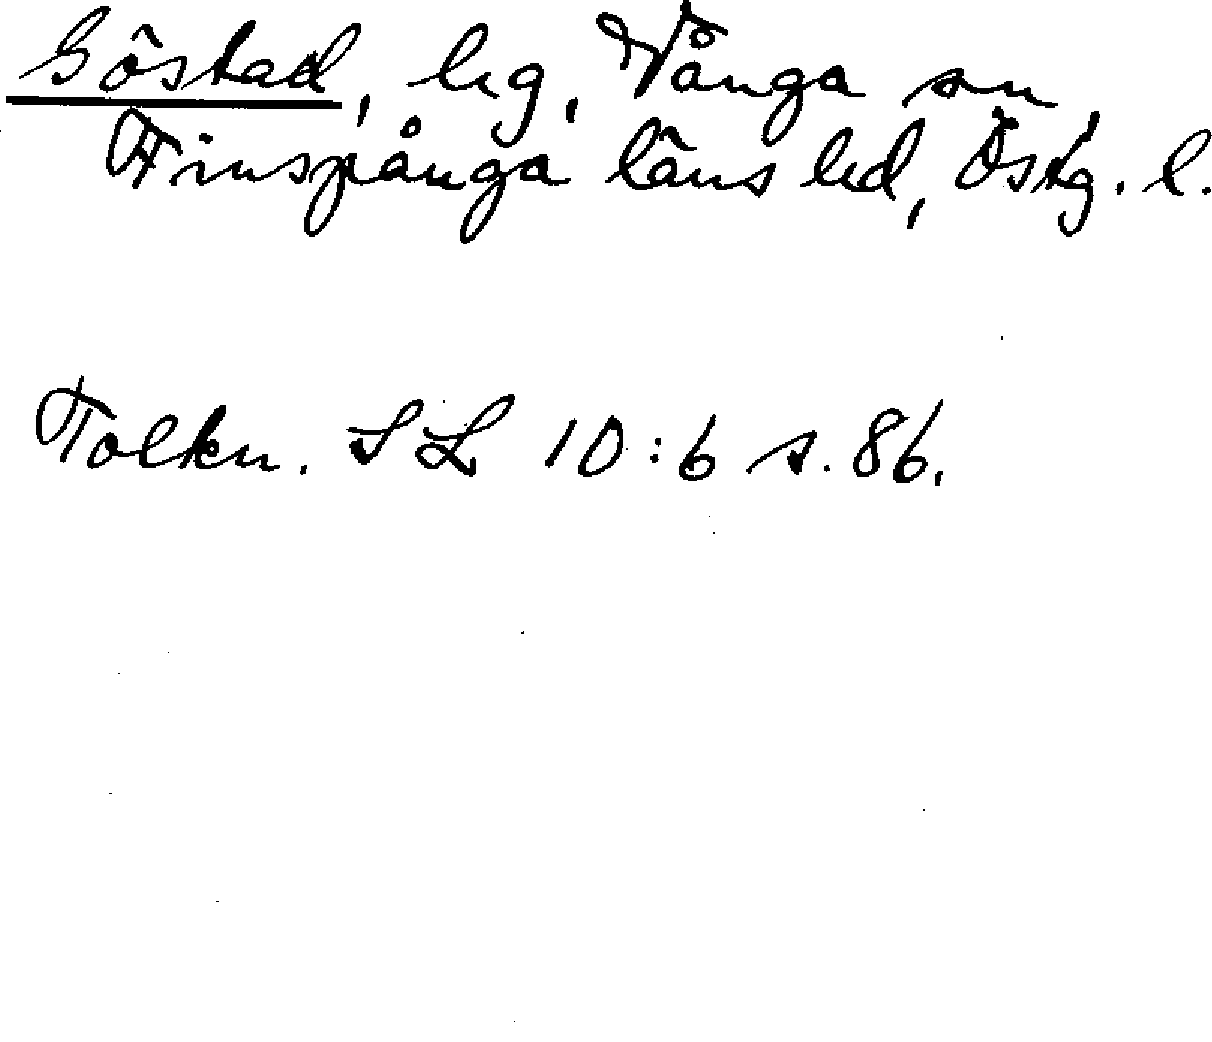 Göstad, hg, Vånga sn,
Finspånga läns hd, Östg. l.
Tolkn. SL 10:6 s. 86.